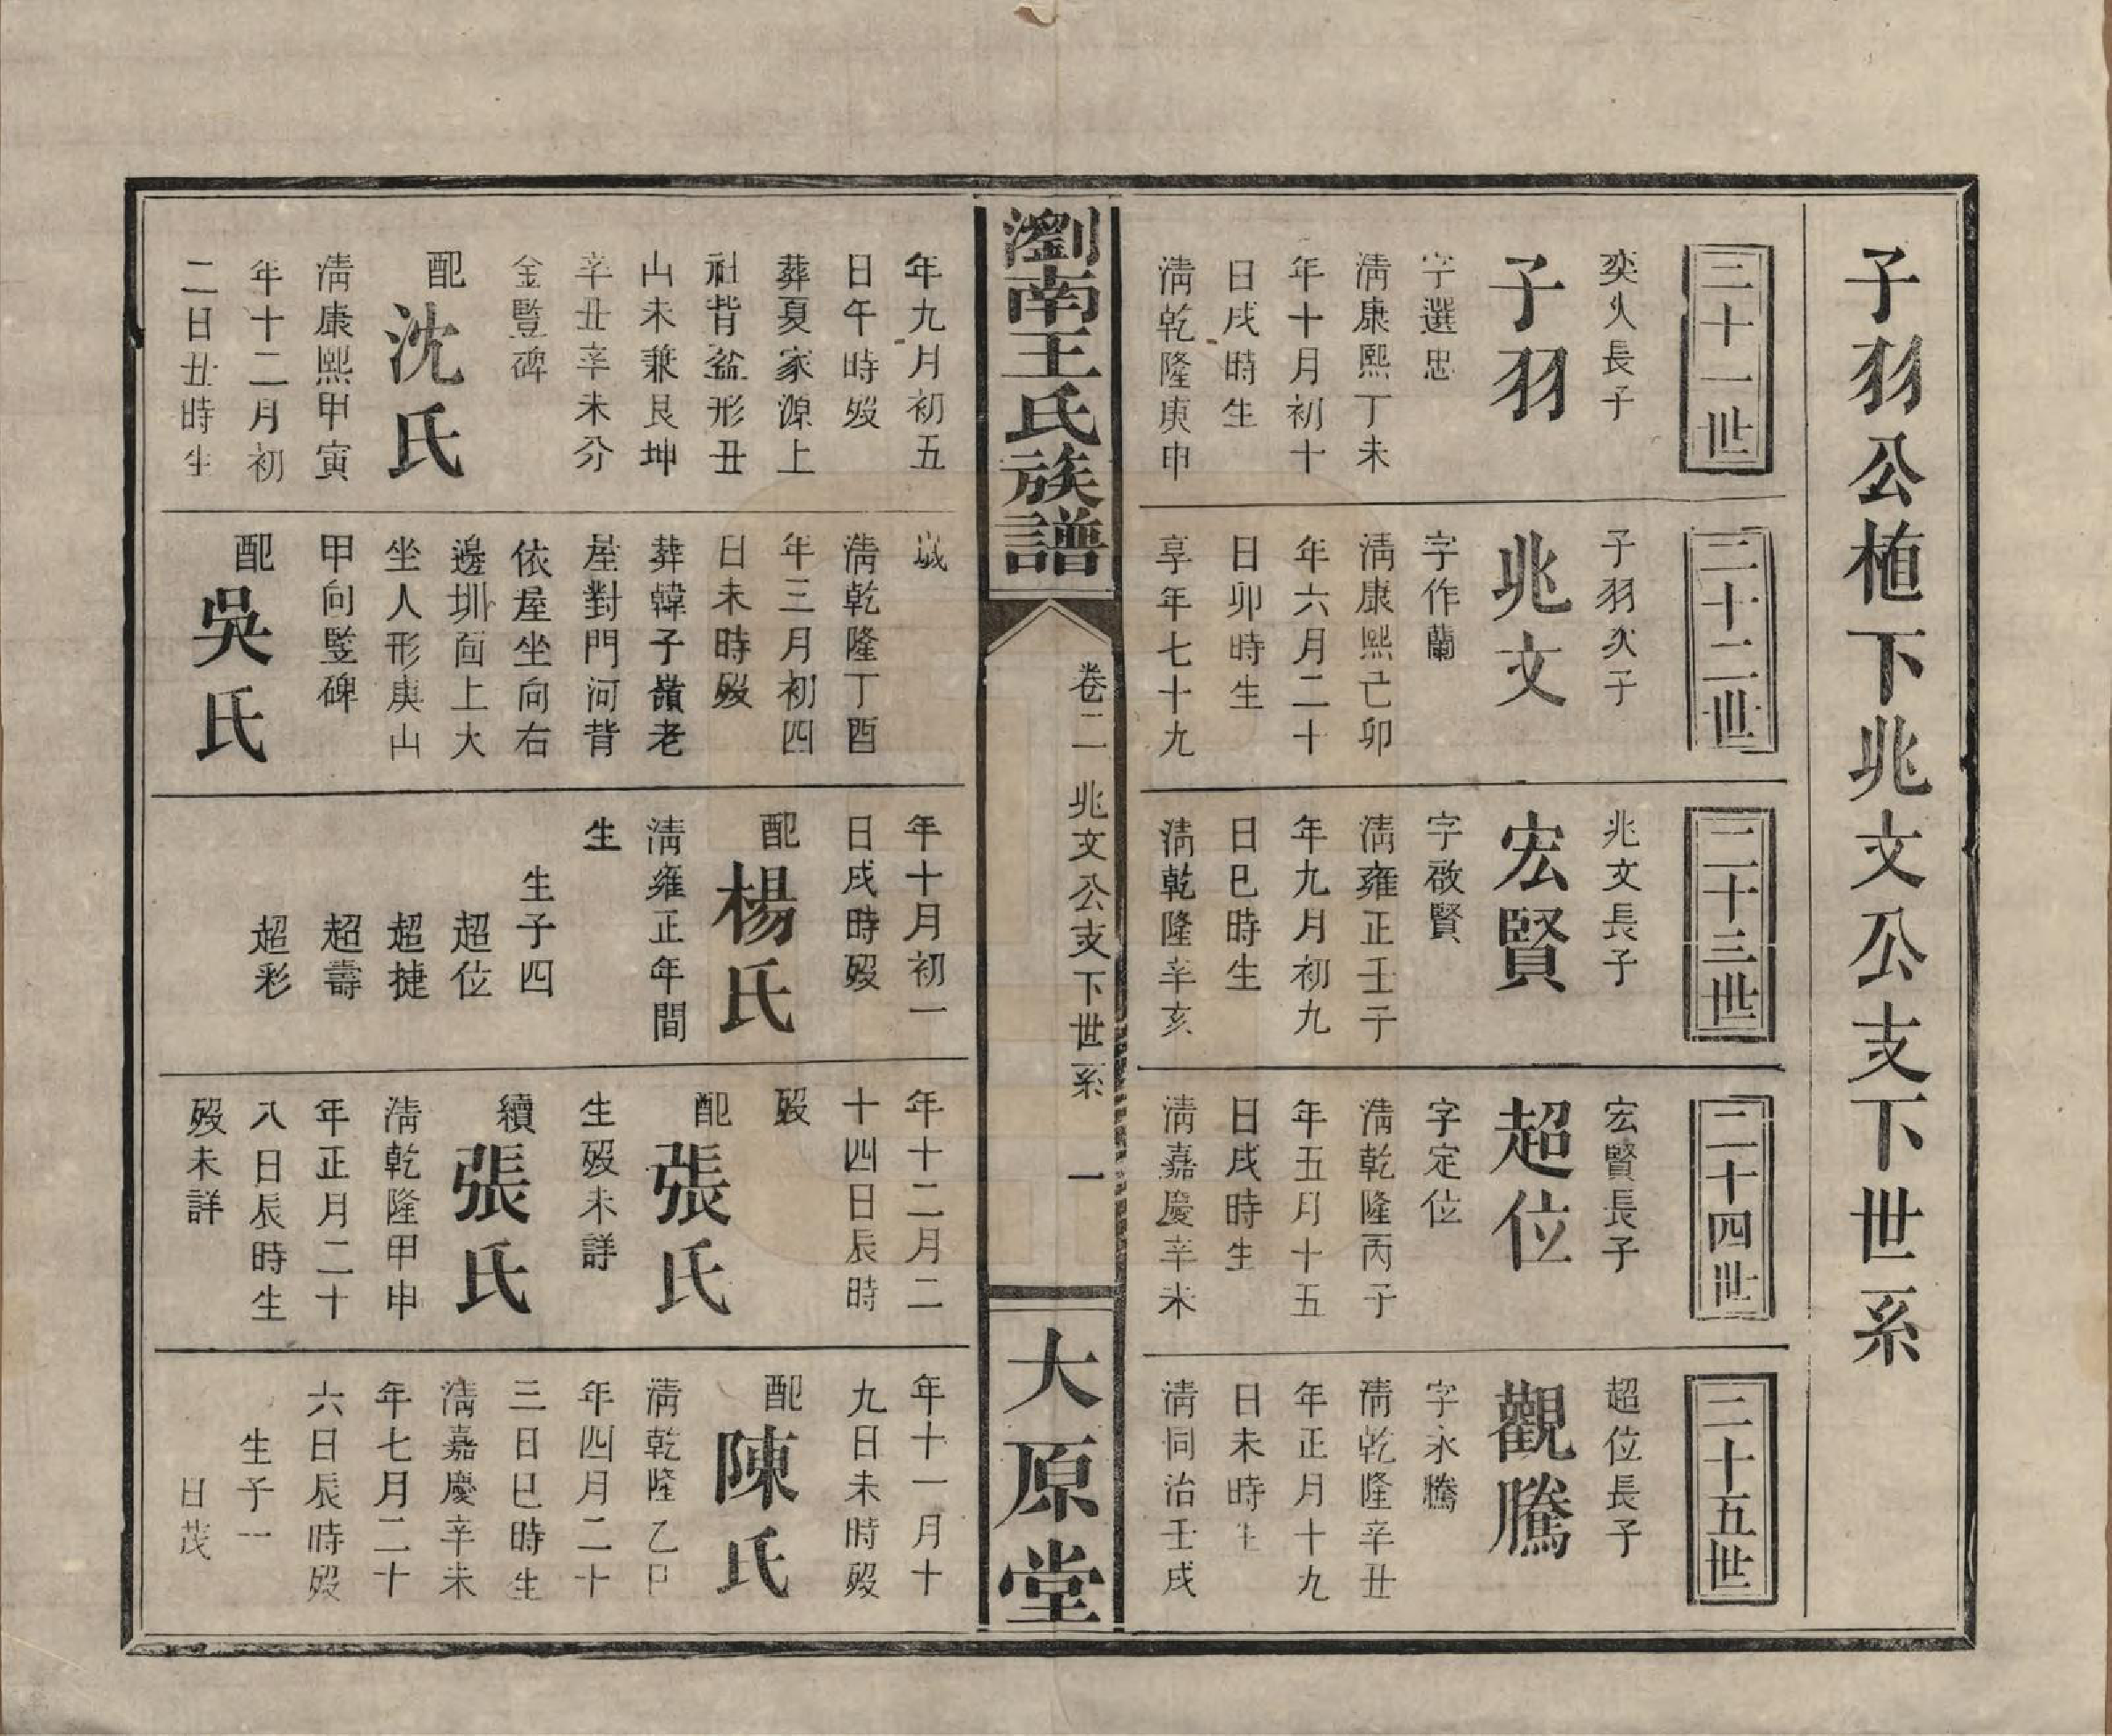 子羽公植下兆文公支下世系
二十一世
奕久長子
子羽
字選忠
清康熙丁未
年十月初十
日戌時生
清乾隆庚申
二十二世
子羽次子
兆文
字作蘭
清康熙己卯
年六月二十
日卯時生
享年七十九
二十三世
兆文長子
宏賢
字啟賢
清雍正壬子
年九月初九
日巳時生
清乾隆辛亥
二十四世
宏賢長子
超位
字定位
清乾隆丙子
年五月十五
日戌時生
清嘉慶辛未
二十五世
超位長子
觀騰
字永騰
清乾隆辛丑
年正月十九
日未時生
清同治壬戌
瀏南王氏族譜
卷二 兆文公支下世系 一
大原堂
年九月初五
日午時歿
葬夏家源上
社背盆形丑
山未兼艮坤
辛丑辛未分
金豎碑
配
沈氏
清康熙甲寅
年十二月初
二日丑時生
歲
清乾隆丁酉
年三月初四
日未時歿
葬韓子嶺老
屋對門河背
依屋坐向右
邊圳面上大
坐人形庚山
甲向豎碑
配
吳氏
年十月初一
日戌時歿
配
楊氏
清雍正年間
生
生子四
超位
超捷
超壽
超彩
年十二月二
十四日辰時
歿
配
張氏
生歿未詳
續
張氏
清乾隆甲申
年正月二十
八日辰時生
歿未詳
年十一月十
九日未時歿
配
陳氏
清乾隆乙巳
年四月二十
三日巳時生
清嘉慶辛未
年七月二十
六日辰時歿
生子一
日茂